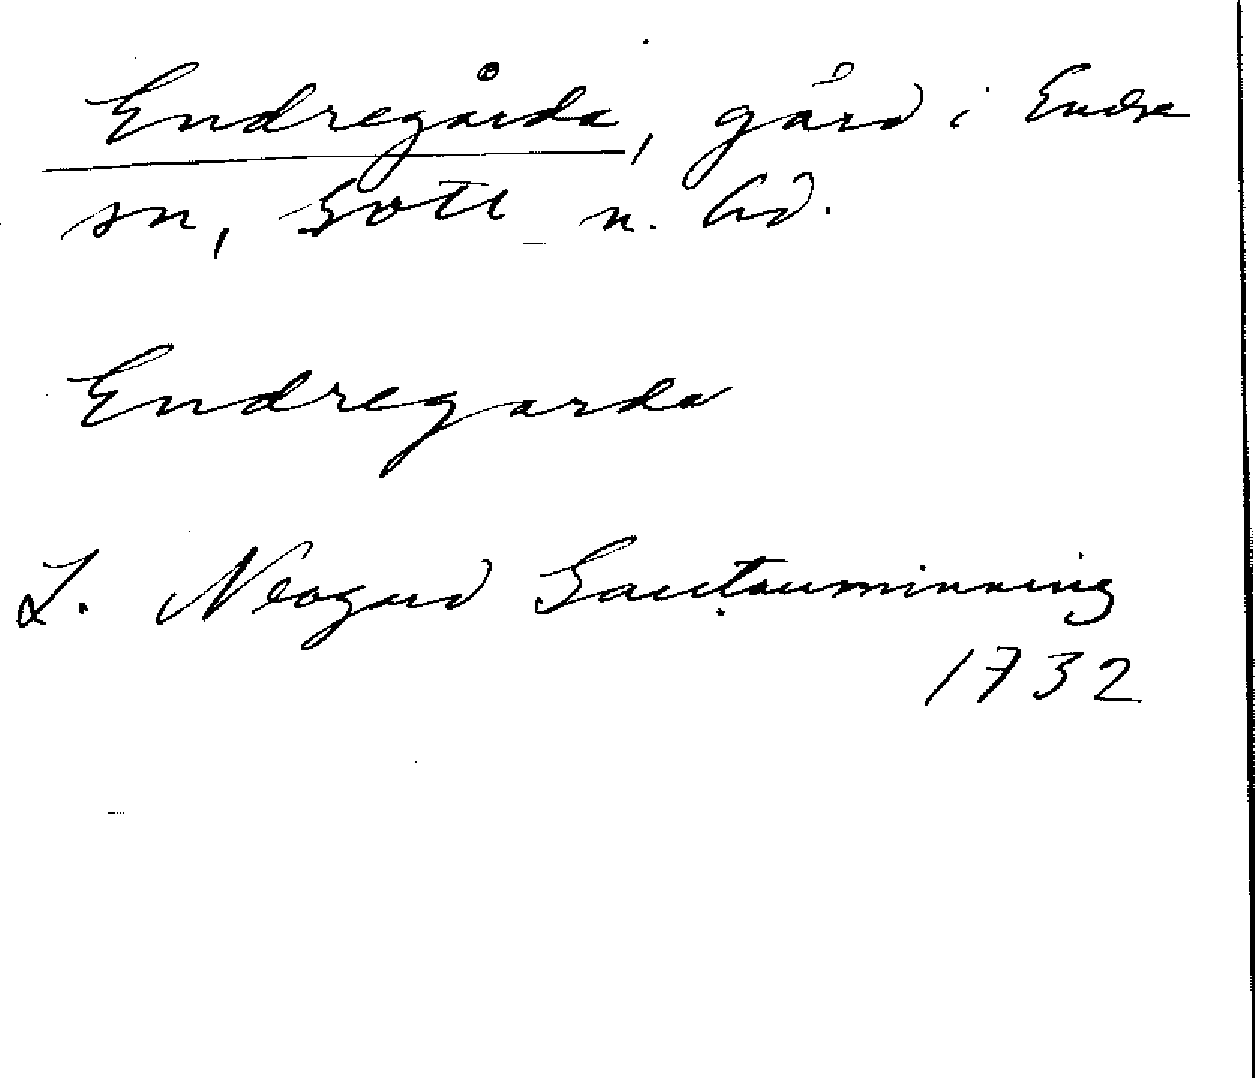 Endregårda, gård i Endre
sn, Gotl n. hd.
Endregarda
L. Neogard Gautauminning
1732